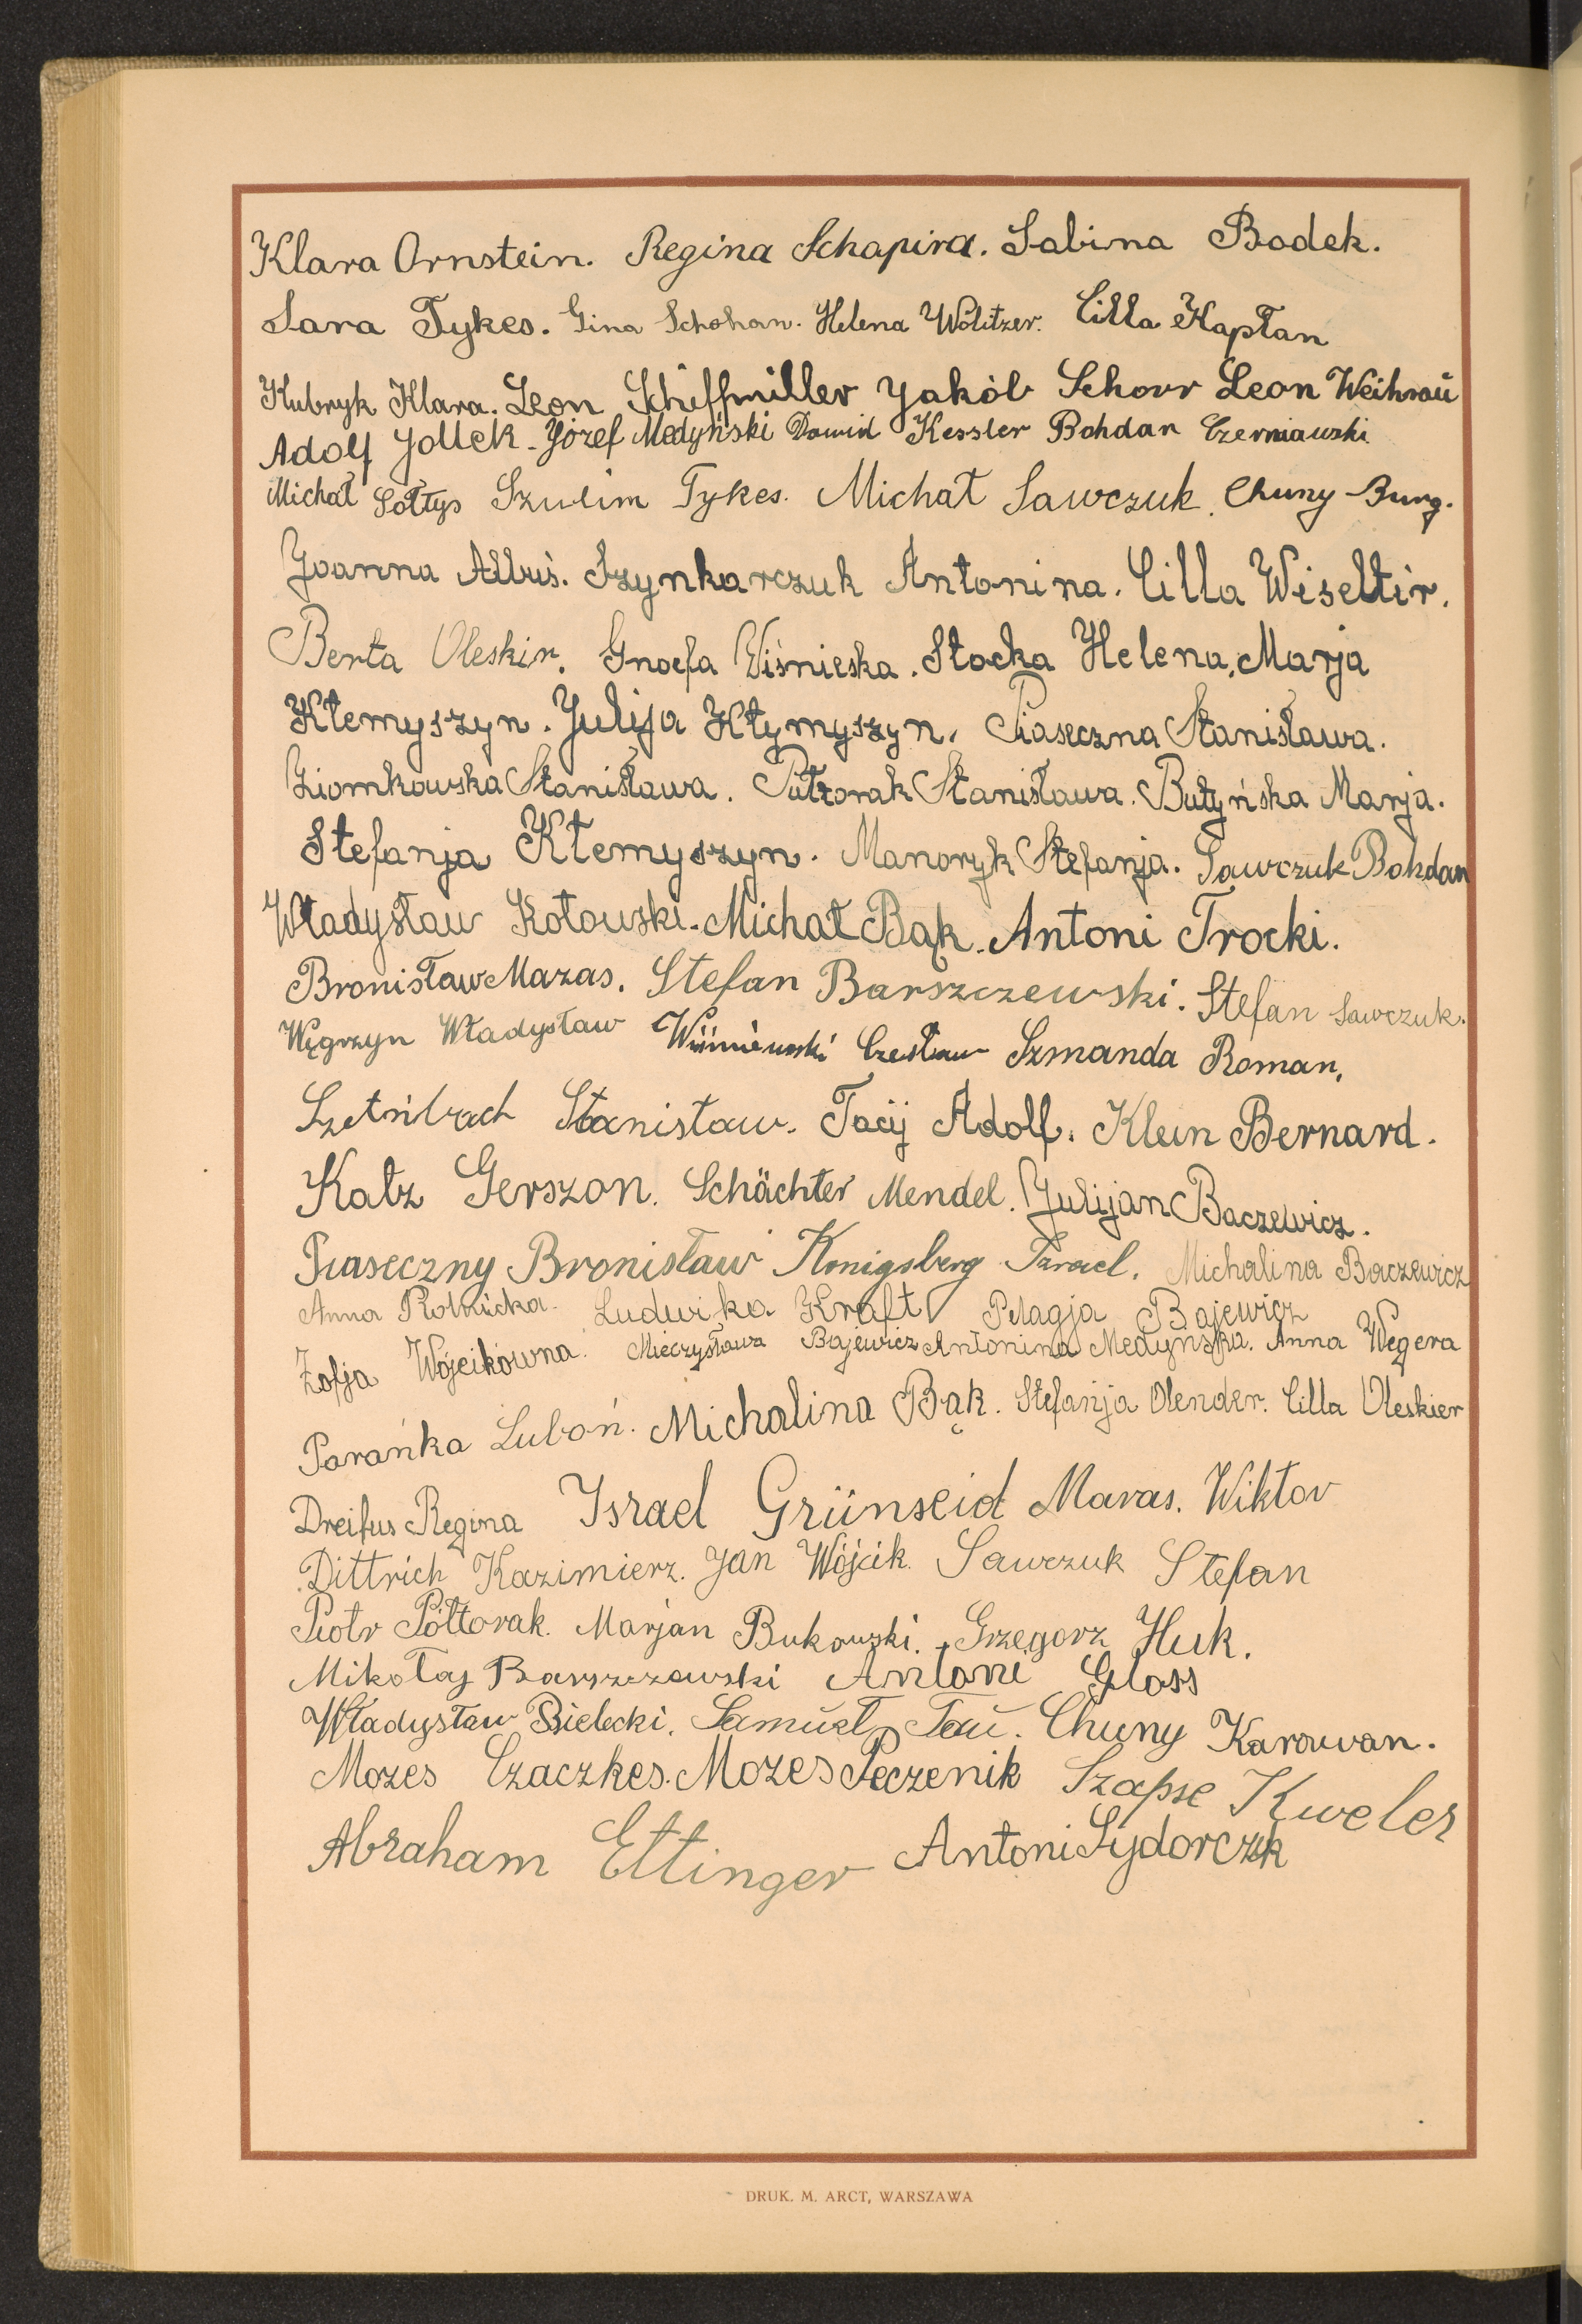 Klara Ornstein. Regina Schapira. Sabina Bodek.
Sara Tykes. Gina Schohan. Helena Wolitzer. Cilla Kapłan
Kubryk Klara. Leon Schiffmiller Jakób Schorr Leon Weihrau
Adolf Jollek - Józef Medyński Dawid Kessler Bohdan Czerniawski
Michał Sołtys Szulim Tykes. Michał Sawczuk. Chuny Burg.
Joanna Szynkarczuk Antonina. Cilla Wiseltir.
Berta Oleskir. Wiśnieska. Stocka Helena. Marja
Kłemyszyn. Julija Kłymyszyn. Piaseczna Stanisława.
Ziomkowska Stanisława. Półtorak Stanisława. Butyńska Marja.
Stefanja Kłemyszyn. Manoryk Stefanja. Sawczuk Bohdan
Władysław Kotowski. Michał Bąk. Antoni Trocki.
Bronisław Mazas. Stefan Barszczewski. Stefan Sawczuk.
Węgrzyn Władysław Wiśniewski Czesław Szmanda Roman,
Stanisław. Tacij Adolf. Klein Bernard.
Katz Gerszon. Schächter Mendel. Julijan Baczewicz.
Piaseczny Bronisław Konigsberg Izrael. Michalina Baczewicz
Anna Rolnicka. Ludwika Kraft Pelagja Bajewicz
Zofja Wójcikówna. Mieczysława Bajewicz Antonina Medyńska. Anna Wegera
Parańka Luboń. Michalina Bąk. Stefanja Olender. Cilla Oleskier
Dreifus Regina Israel Grünseid Maras. Wiktor
Dittrich Kazimierz. Jan Wójcik. Sawczuk Stefan
Piotr Półtorak. Marjan Bukowski. Grzegorz Huk.
Mikołaj Barszczewski Antoni Gloss
Władysław Bielecki. Samuel Tau. Chuny Karawan.
Mozes Czaczkes. Mozes Peczenik Szapse Kweler
Abraham Ettinger Antoni Sydorczuk
DRUK. M. ARCT, WARSZAWA